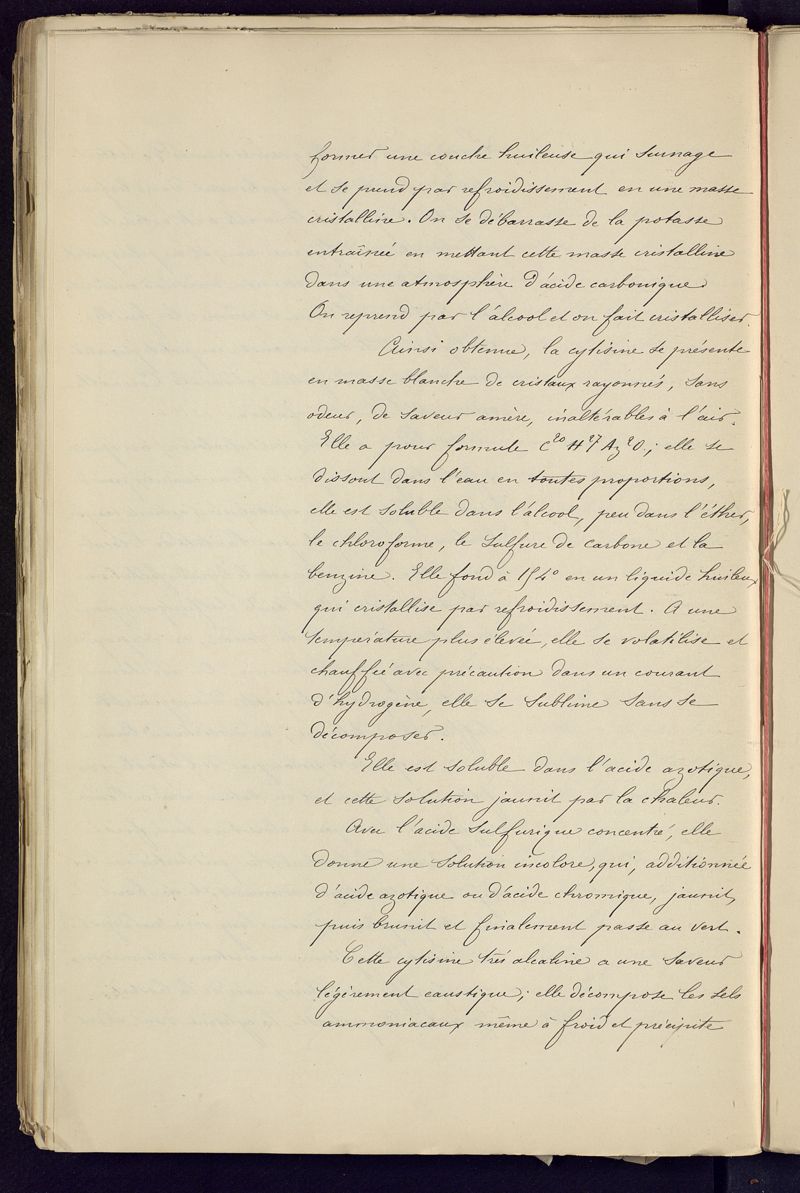 former une couche huileuse qui surnage
et se prend par refroidissement en une masse
cristalline. On se débarrasse de la potasse
entraînée en mettant cette masse cristalline
dans une atmosphère d'acide carbonique.
On reprend par l'alcool et on fait cristalliser.
Ainsi obtenue, la cytisine se présente
en masse blanche de cristaux rayonnés, sans
odeur, de saveur amère, inaltérables à l'air.
Elle a pour formule C²⁰ H²⁷ Az² O.; elle se
dissout dans l'eau en toutes proportions,
elle est soluble dans l'alcool, peu dans l'éther,
le chloroforme, le sulfure de carbone et la
benzine. Elle fond à 154° en un liquide huileux
qui cristallise par refroidissement. A une
température plus élevée, elle se volatilise et
chauffée avec précaution dans un courant
d'hydrogène, elle se sublime sans se
décomposer.
Elle est soluble dans l'acide azotique,
et cette solution jaunit par la chaleur.
Avec l'acide sulfurique concentré, elle
donne une solution incolore, qui, additionnée
d'acide azotique ou d'acide chromique, jaunit,
puis brunit et finalement passe au vert.
Cette cytisine très alcaline a une saveur
légèrement caustique; elle décompose les sels
ammoniacaux même à froid et précipite